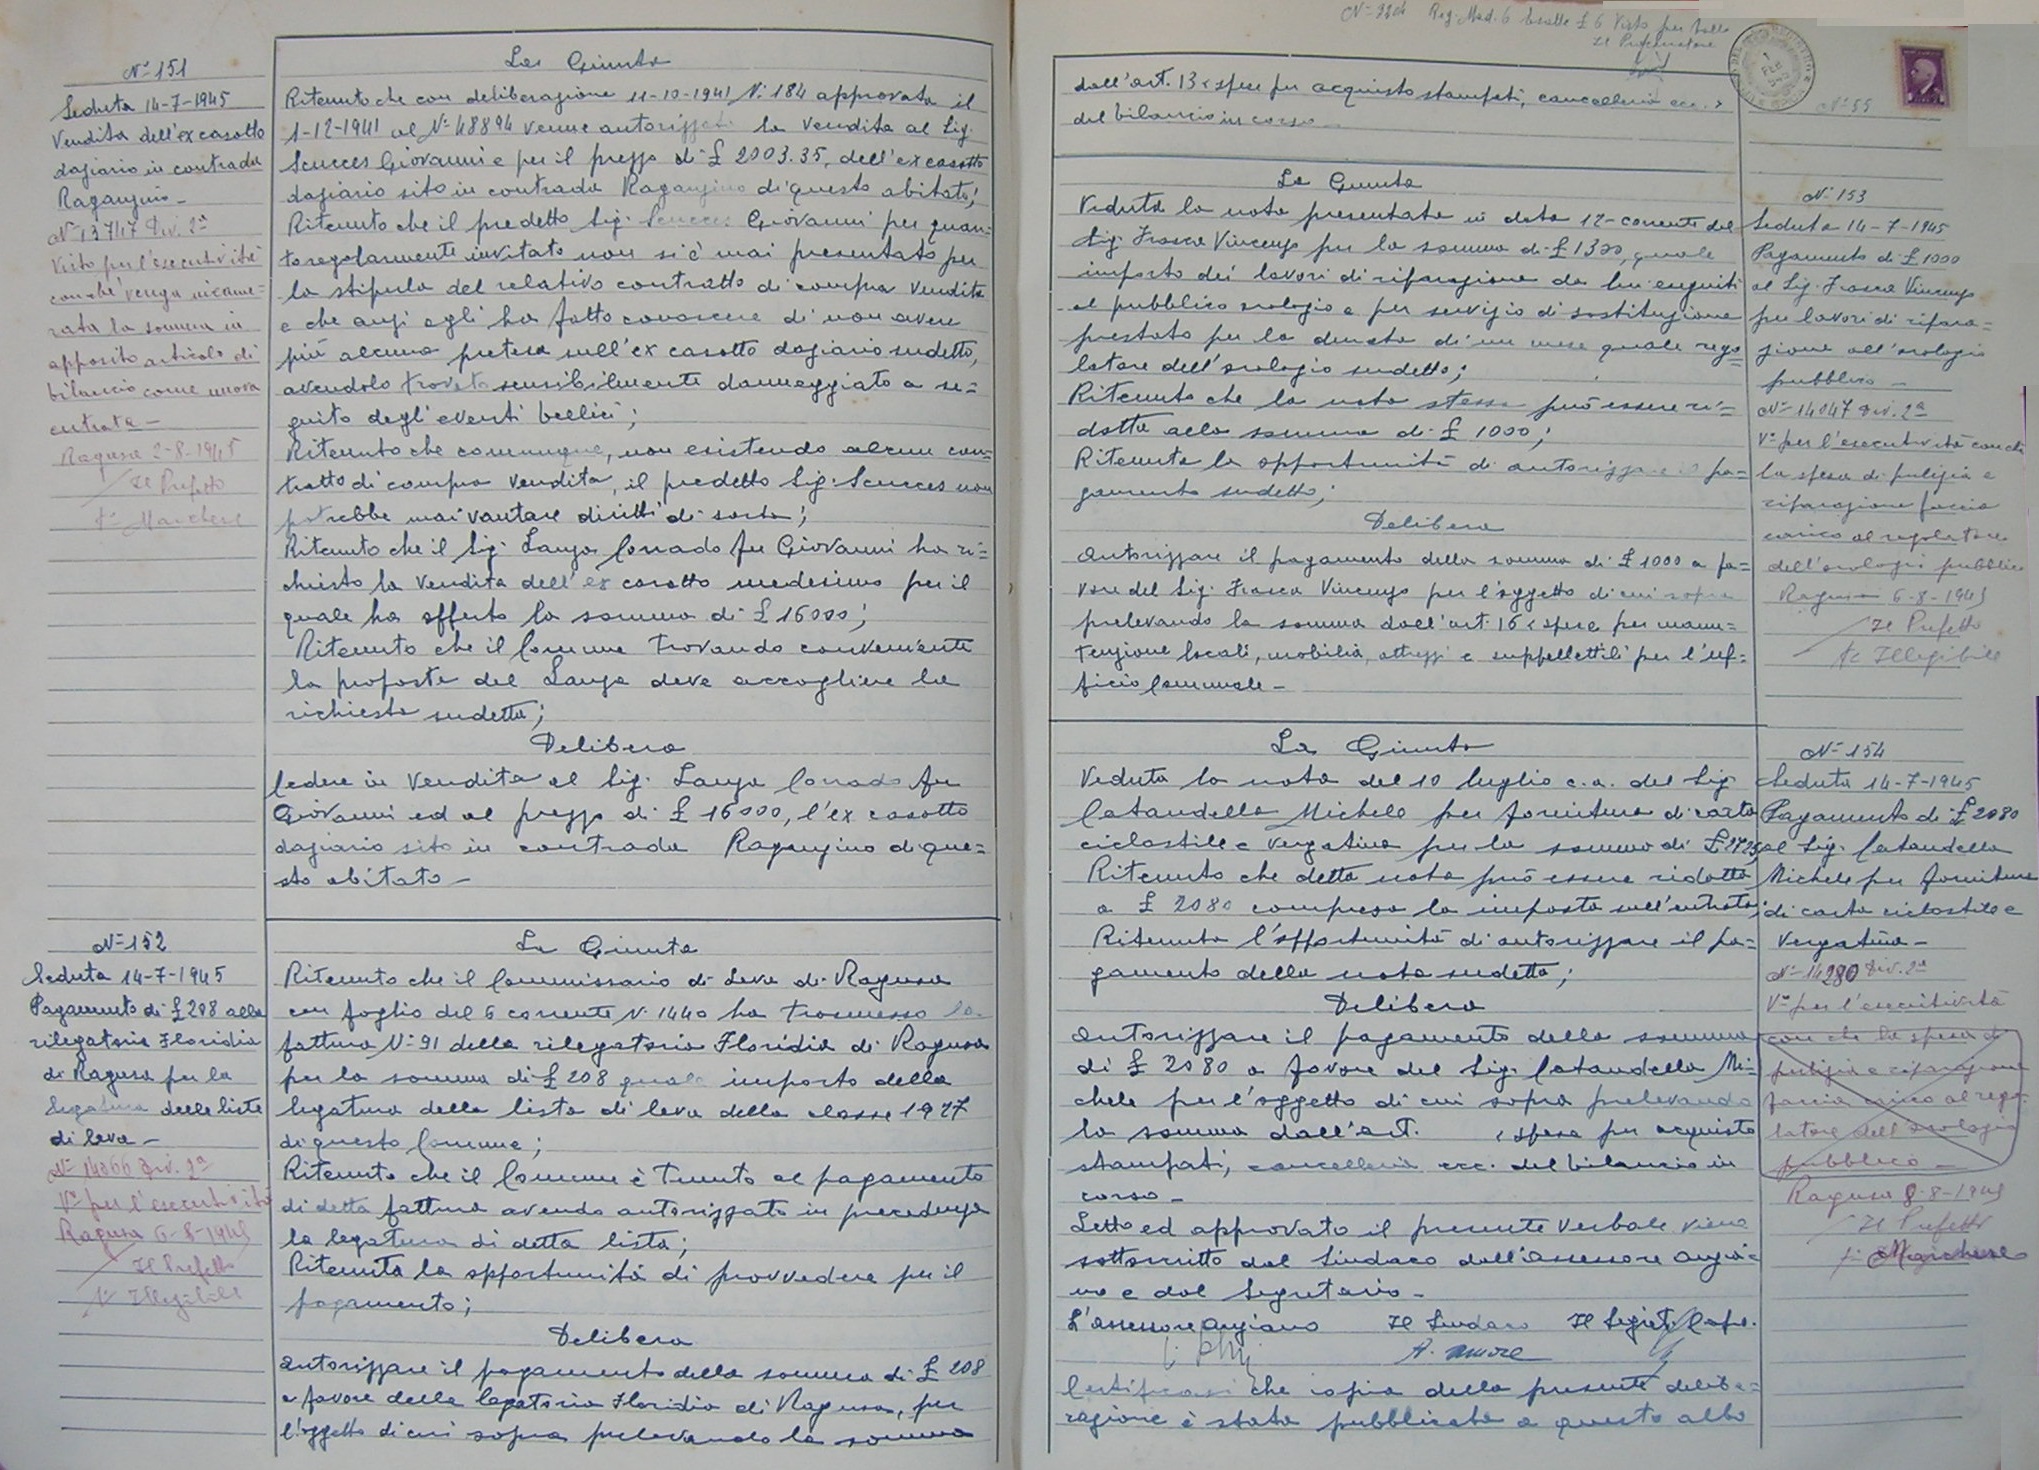 N° 151
Seduta 14-7-1945
Vendita dell'ex casotto
daziario in contrada
Raganzino -
N° 13747 Div. 2ª
Visto per l'esecutività
conché venga incame=
rata la somma in
apposito articolo di
bilancio come nuova
entrata -
Ragusa 2-8-1945
Il Prefetto
f° Marchese
La Giunta
Ritenuto che con deliberazione 11-10-1941 N. 184 approvata il
1-12-1941 al N° 48894 venne autorizzata la vendita al Sig.
Scucces Giovanni e per il prezzo di £ 2003.35, dell'ex casotto
daziario sito in contrada Raganzino di questo abitato;
Ritenuto che il predetto Sig. Scucces Giovanni per quan=
to regolarmente invitato non si è mai presentato per
la stipula del relativo contratto di compra vendita
e che anzi egli ha fatto conoscere di non avere
più alcuna pretesa sull'ex casotto daziario sudetto,
avendolo trovato sensibilmente danneggiato a se=
guito degli eventi bellici;
Ritenuto che comunque, non esistendo alcun con=
tratto di compra vendita, il predetto Sig. Scucces non
potrebbe mai vantare diritti di sorta;
Ritenuto che il Sig. Lauza Corrado fu Giovanni ha ri=
chiesto la vendita dell'ex casotto medesimo per il
quale ha offerto la somma di £ 16000;
Ritenuto che il Comune trovando conveniente
la proposta del Lauza deve accogliere la
richiesta sudetta;
Delibera
Cedere in vendita al Sig. Lauza Corrado fu
Giovanni ed al prezzo di £ 16000, l'ex casotto
daziario sito in contrada Raganzino di que=
sto abitato -
N° 152
Seduta 14-7-1945
Pagamento di £ 208 alla
rilegatoria Floridia
di Ragusa per la
legatura delle liste
di leva -
N° 14066 Div. 2ª
V° per l'esecutività
Ragusa 6-8-1945
Il Prefetto
f° Illegibile
La Giunta
Ritenuto che il Commissario di Leva di Ragusa
con foglio del 6 corrente N. 1440 ha trasmesso la
fattura N° 91 della rilegatoria Floridia di Ragusa
per la somma di £ 208 quale importo della
legatura della lista di leva della classe 1927
di questo Comune;
Ritenuto che il Comune è tenuto al pagamento
di detta fattura avendo autorizzato in precedenza
la legatura di detta lista;
Ritenuta la opportunità di provvedere per il
pagamento;
Delibera
Autorizzare il pagamento della somma di £ 208
a favore della legatoria Floridia di Ragusa, per
l'oggetto di cui sopra prelevando la somma
N° 9204 Reg. Mod. 6 Esatte £ 6 Visto per bollo
Il Procuratore
N° 55
dall'art. 13 < spese per acquisto stampati, cancelleria ecc. >
del bilancio in corso -
La Giunta
Veduta la nota presentata in data 12 corrente dal
Sig. Frasca Vincenzo per la somma di £ 1300, quale
importo dei lavori di riparazione da lui eseguiti
al pubblico orologio e per servizio di sostituzione
prestato per la durata di un mese quale rego=
latore dell'orologio sudetto;
Ritenuto che la nota stessa può essere ri=
dotta alla somma di £ 1000;
Ritenuta la opportunità di autorizzare il pa=
gamento sudetto;
Delibera
Autorizzare il pagamento della somma di £ 1000 a fa=
vore del Sig. Frasca Vincenzo per l'oggetto di cui sopra
prelevando la somma dall'art. 16 < spese per manu=
tenzione locali, mobilia, attrezzi e suppellettili per l'uf=
ficio Comunale -
N° 153
Seduta 14-7-1945
Pagamento di £ 1000
al Sig. Frasca Vincenzo
per lavori di ripara=
zione all'orologio
pubblico -
N° 14047 Div. 2ª
V° per l'esecutività conché
la spesa di pulizia e
riparazione faccia
carico al regolatore
dell'orologio pubblico
Ragusa 6-8-1945
Il Prefetto
f° Illegibile
La Giunta
Veduta la nota del 10 luglio c.a. del Sig.
Cataudella Michele per fornitura di carta
ciclostile e vergatina per la somma di £ 2725
Ritenuto che detta nota può essere ridotta
a £ 2080 compresa la imposta sull'entrata;
Ritenuta l'opportunità di autorizzare il pa=
gamento della nota sudetta;
Delibera
Autorizzare il pagamento della somma
di £ 2080 a favore del Sig. Cataudella Mi=
chele per l'oggetto di cui sopra prelevando
la somma dall'art. < spesa per acquisto
stampati, cancelleria ecc. del bilancio in
corso -
Letto ed approvato il presente verbale viene
sottoscritto dal Sindaco dall'Assessore anzia=
no e dal Segretario -
L'Assessore anziano Il Sindaco Il Segret. Capo.
A. Amore
Certificasi che copia della presente delibe=
razione è stata pubblicata a questo albo
N° 154
Seduta 14-7-1945
Pagamento di £ 2080
al Sig. Cataudella
Michele per fornitura
di carta ciclostile e
vergatina -
N° 14280 Div. 2ª
V° per l'esecutività
con che la spesa di
pulizia e riparazione
faccia carico al rego=
latore dell'orologio
pubblico -
Ragusa 8-8-1945
Il Prefetto
f° Marchese